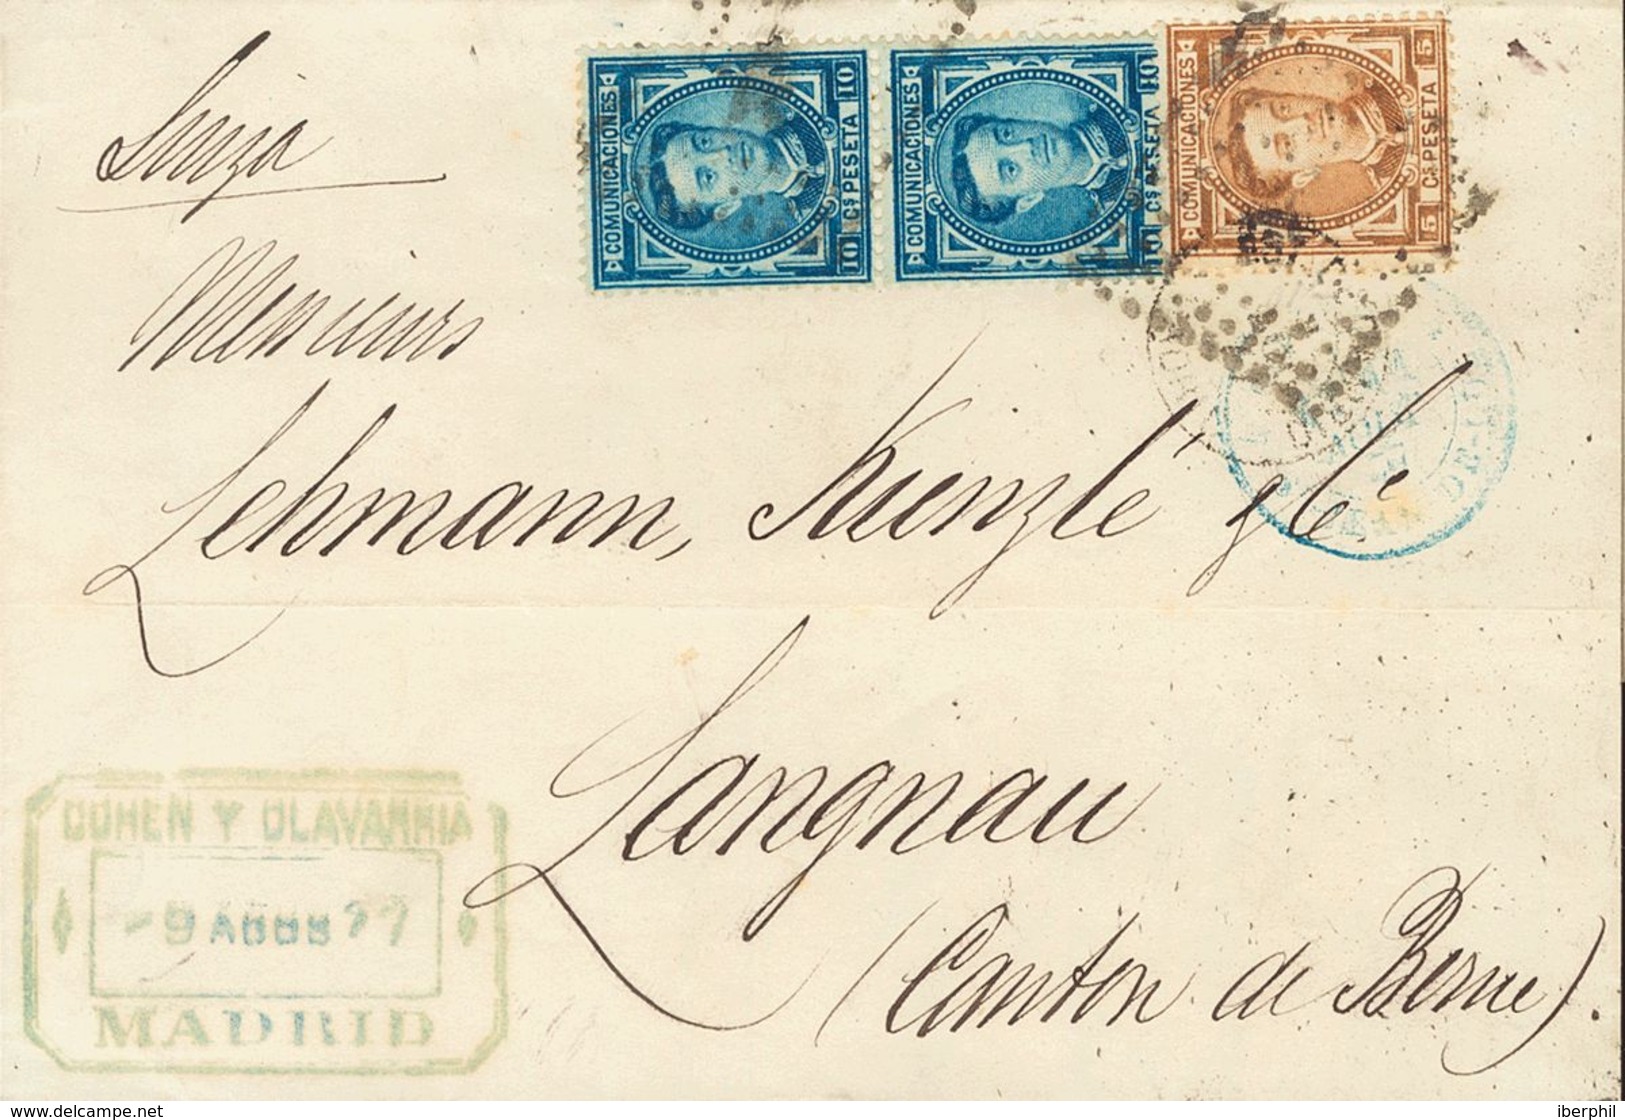 COMUNICACIONES
10 Cs PESETA 10
COMUNICACIONES
10 Cs PESETA 10
COMUNICACIONES
5 Cs PESETA 5
Suiza
Messieurs
Lehmann, Kunzlé & Cé
Langnau
(Canton de Berne).
COHEN Y OLAVARRIA
9 AGOS 77
MADRID
delcampe.net
iberphil